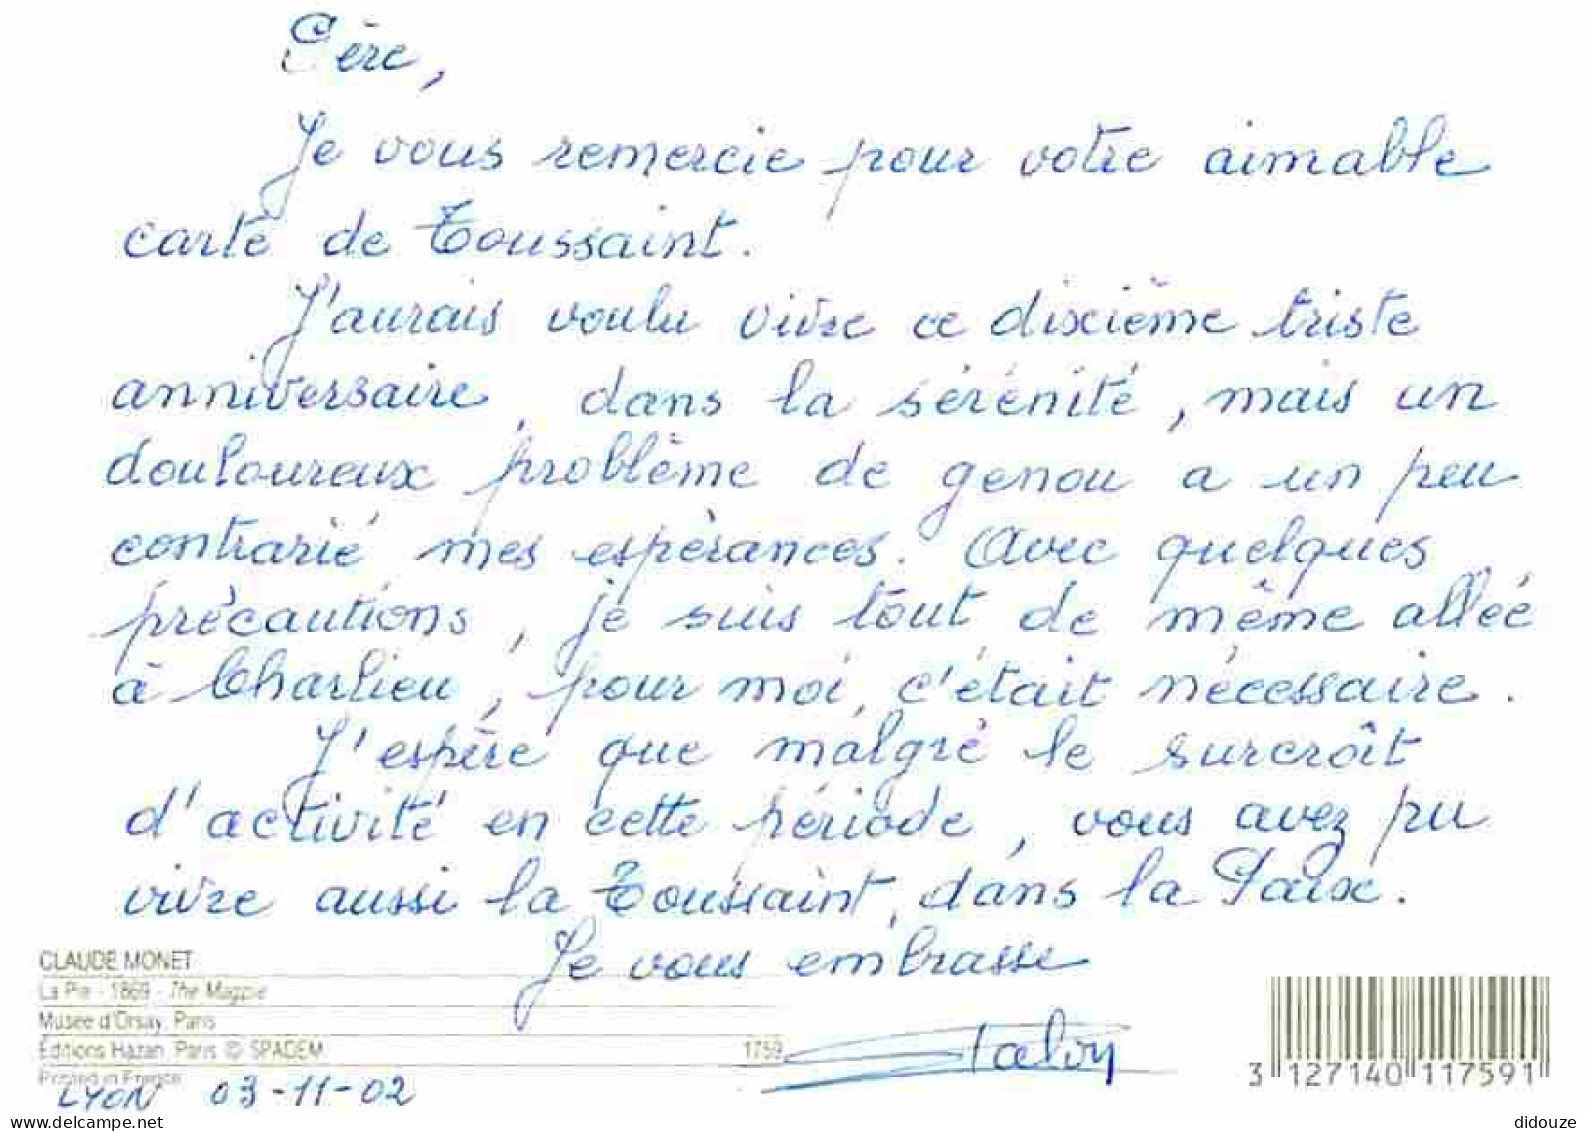 Père,
Je vous remercie pour votre aimable
carte de Toussaint.
J'aurais voulu vivre ce dixième triste
anniversaire, dans la sérénité, mais un
douloureux problème de genou a un peu
contrarié mes espérances. Avec quelques
précautions, je suis tout de même allée
à Charlieu, pour moi, c'était nécessaire.
J'espère que malgré le surcroît
d'activité en cette période, vous avez pu
vivre aussi la Toussaint, dans la Paix.
Je vous embrasse
CLAUDE MONET
La Pie - 1869 - The Magpie
Musée d'Orsay, Paris
Éditions Hazan, Paris © SPADEM
1759
Printed in France
LYON 03-11-02
3 127140 117591
www.delcampe.net
didouze